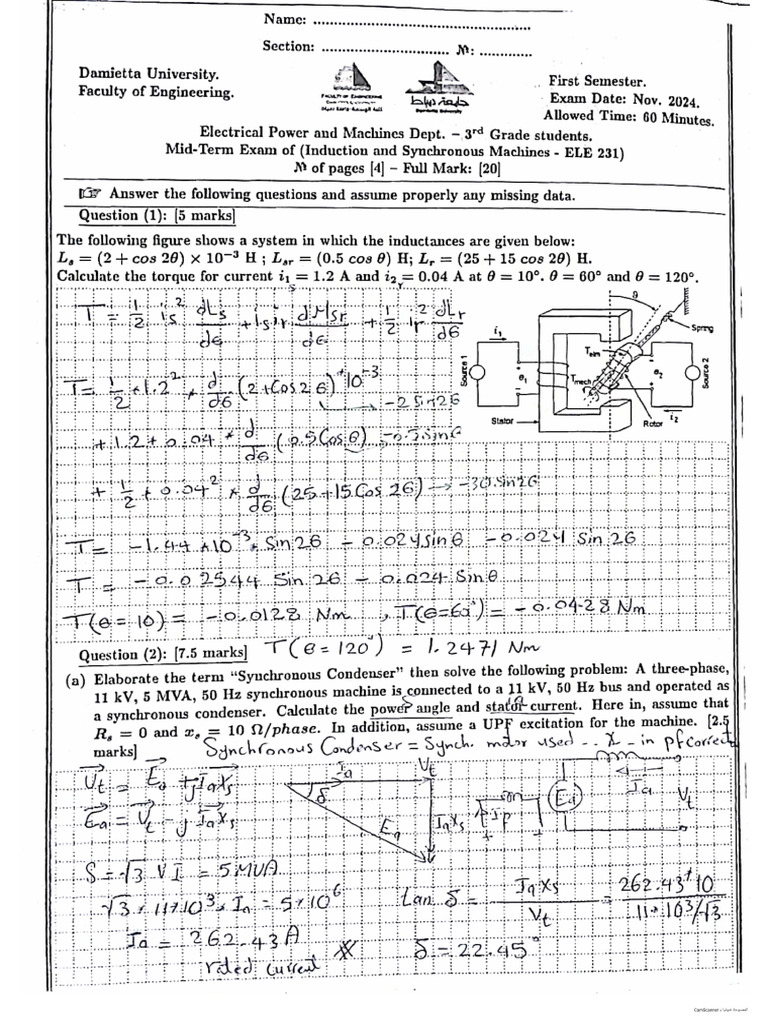 Name: ................................................
Section: .............................. №: .............
Damietta University.
Faculty of Engineering.
FACULTY OF ENGINEERING
جامعة دمياط
First Semester.
Exam Date: Nov. 2024.
Allowed Time: 60 Minutes.
Electrical Power and Machines Dept. – 3rd Grade students.
Mid-Term Exam of (Induction and Synchronous Machines - ELE 231)
№ of pages [4] – Full Mark: [20]
☞ Answer the following questions and assume properly any missing data.
Question (1): [5 marks]
The following figure shows a system in which the inductances are given below:
Ls = (2 + cos 2θ) × 10⁻³ H ; Lsr = (0.5 cos θ) H; Lr = (25 + 15 cos 2θ) H.
Calculate the torque for current i1 = 1.2 A and i2 = 0.04 A at θ = 10°. θ = 60° and θ = 120°.
s r
T = 1/2 is² dLs/dθ + is ir dMsr/dθ + 1/2 ir² dLr/dθ
T = 1/2 * 1.2² * d/dθ (2 + Cos 2θ) * 10⁻³
→ -2 Sin 2θ
+ 1.2 * 0.04 * d/dθ (0.5 Cos θ) → -0.5 Sin θ
+ 1/2 * 0.04² * d/dθ (25 + 15 Cos 2θ) → -30 Sin 2θ
T = -1.44 * 10⁻³ * Sin 2θ - 0.024 Sin θ - 0.024 Sin 2θ
T = -0.02544 Sin 2θ - 0.024 Sin θ
T(θ = 10) = -0.0128 Nm , T(θ = 60°) = -0.0428 Nm
T(θ = 120°) = 1.2471 Nm
θ
Spring
i1
Source 1
e1
Telm
Tmech
e2
Source 2
Stator
Rotor
i2
Question (2): [7.5 marks]
(a) Elaborate the term "Synchronous Condenser" then solve the following problem: A three-phase,
11 kV, 5 MVA, 50 Hz synchronous machine is connected to a 11 kV, 50 Hz bus and operated as
a synchronous condenser. Calculate the power angle and stator current. Here in, assume that
Rs = 0 and xs = 10 Ω/phase. In addition, assume a UPF excitation for the machine. [2.5
marks]
Synchronous Condenser = Synch. motor used .. in pf correct
Vt = Ea + j Ia xs
Ea = Vt - j Ia xs
S = √3 V I = 5 MVA
√3 * 11 * 10³ * Ia = 5 * 10⁶
Ia = 262.43 A
rated current
Ia
Vt
δ
Ea
Ia xs
Ea
Ia
Vt
tan δ = Ia xs / Vt = 262.43 * 10 / 11 * 10³/√3
δ = 22.45°
CamScanner